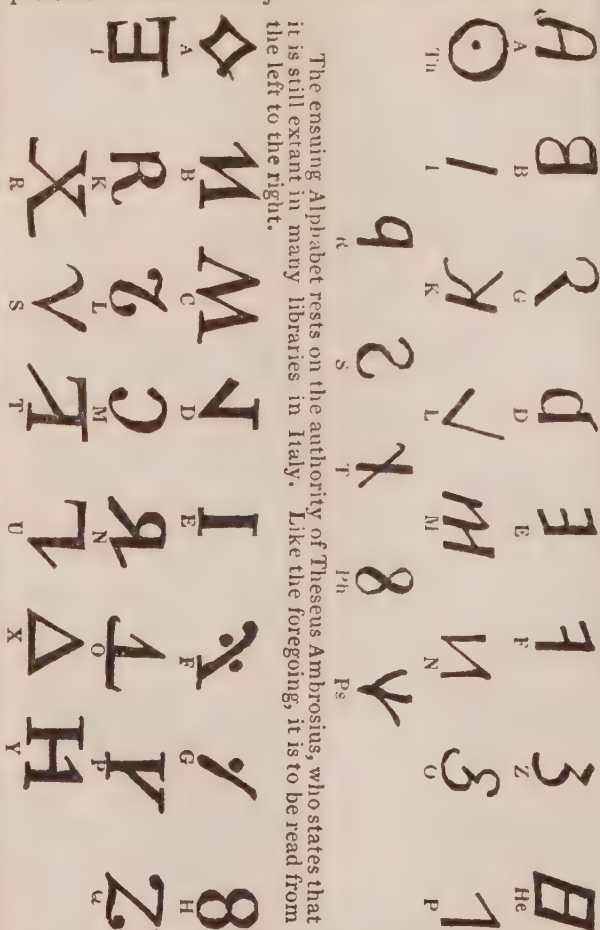 A B G D E F Z He
Th I K L M N O P
R S T Ph Ps
The ensuing Alphabet rests on the authority of Theseus Ambrosius, who states that
it is still extant in many libraries in Italy. Like the foregoing, it is to be read from
the left to the right.
A B C D E F G H
I K L M N O P Q
R S T U X Y